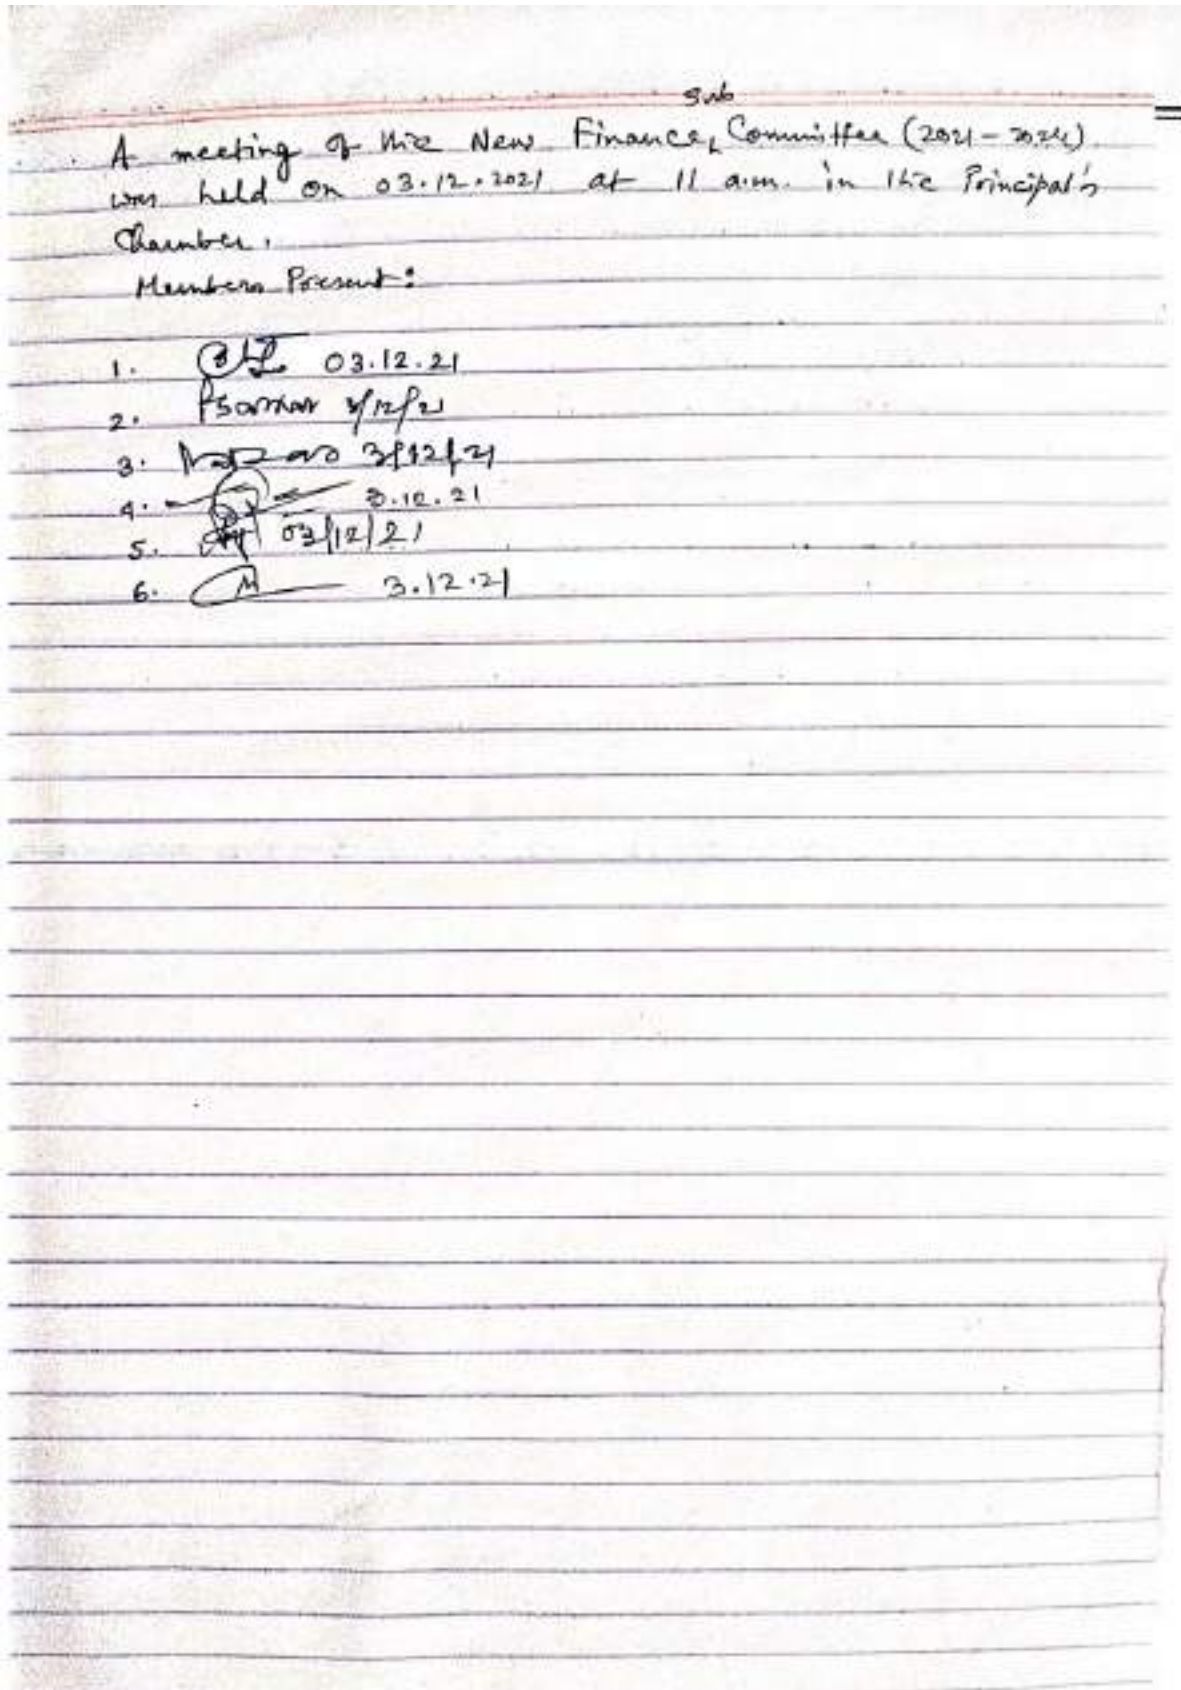 A meeting of the New Finance sub Committee (2021-2024)
was held on 03.12.2021 at 11 a.m. in the Principal's
Chamber.
Members Present:
1. 03.12.21
2. PSarkar 3/12/21
3. 3/12/21
4. 3.12.21
5. 03/12/21
6. 3.12.21